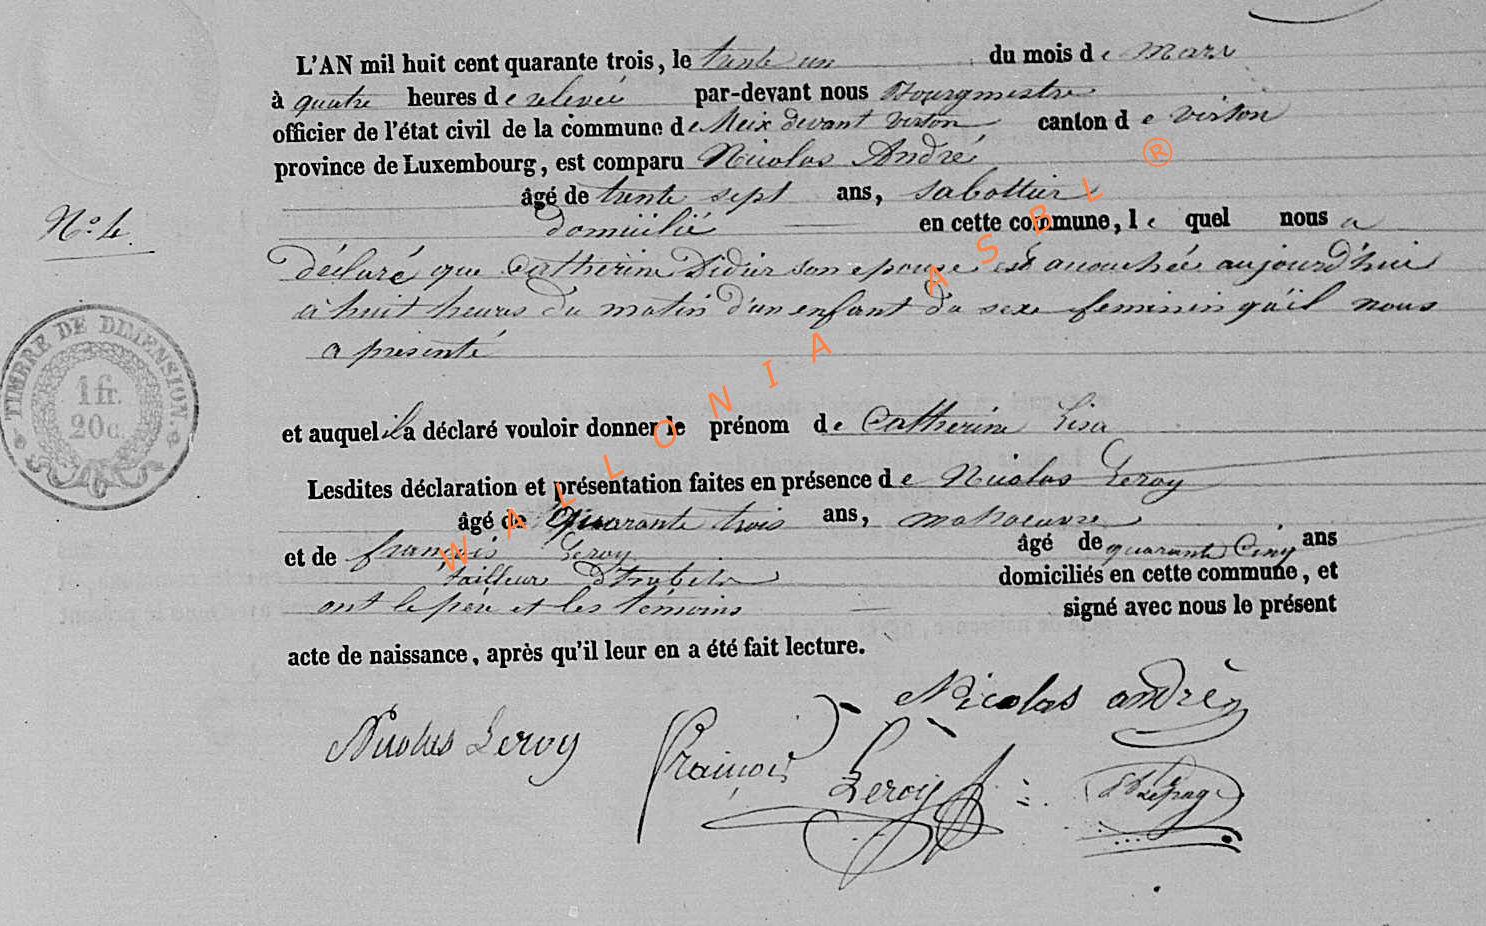 L'AN mil huit cent quarante trois, le trente un du mois de Mars
à quatre heures de relevée par-devant nous Bourgmestre
officier de l'état civil de la commune de Meix devant virton canton de virton
province de Luxembourg, est comparu Nicolas André
âgé de trente sept ans, sabottier
domicilié en cette commune, le quel nous a
N.º 4.
déclaré que Catherine Didier son epouse est accouchée aujourd'hui
à huit heures du matin d'un enfant du sexe feminin qu'il nous
a presenté
TIMBRE DE DIMENSION.
1 fr.
20 c.
et auquel il a déclaré vouloir donner le prénom de Catherine Lisa
Lesdites déclaration et présentation faites en présence de Nicolas Leroy
âgé de quarante trois ans, manoeuvre
et de françois Leroy âgé de quarante Cinq ans
tailleur d'habits domiciliés en cette commune, et
ont le père et les témoins signé avec nous le présent
acte de naissance, après qu'il leur en a été fait lecture.
Nicolas andrè
Nicolas Leroy
François Leroy
Lepage
WALLONIA ASBL ®